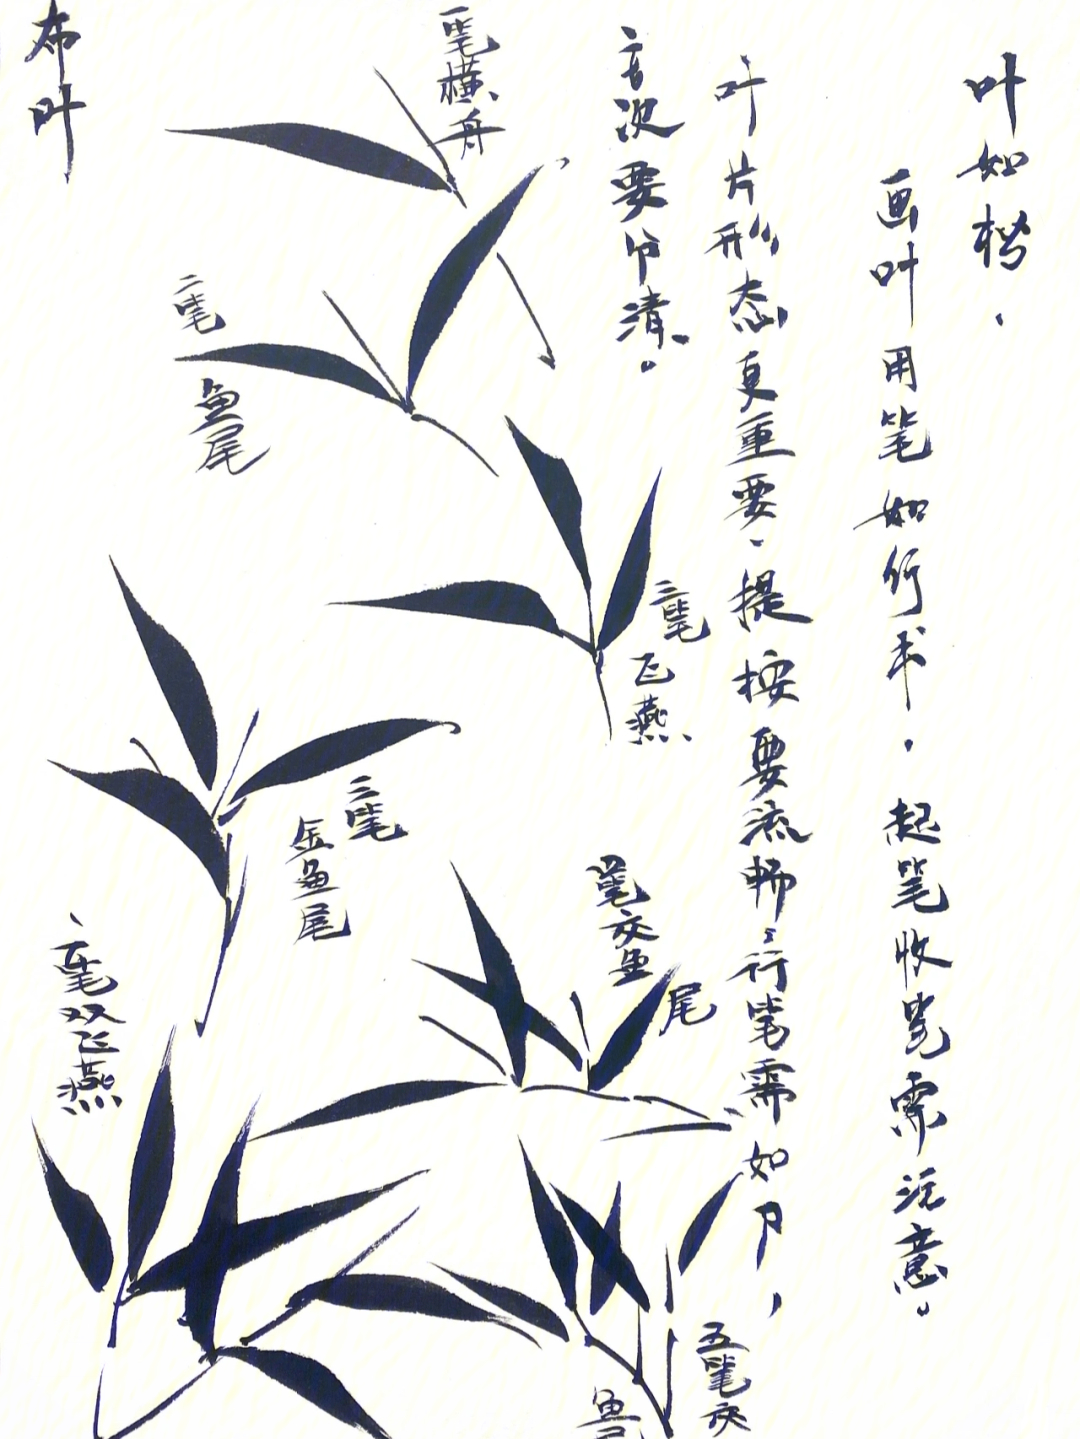 叶如楷、
画叶用笔如行书，起笔收笔需注意。
叶片形态更重要、提按要流畅；行笔需如
主次要分清。
一笔横舟
二笔
鱼尾
三笔
飞燕
三笔
金鱼尾
笔交鱼
尾
笔双飞燕
五笔交
鱼
布叶